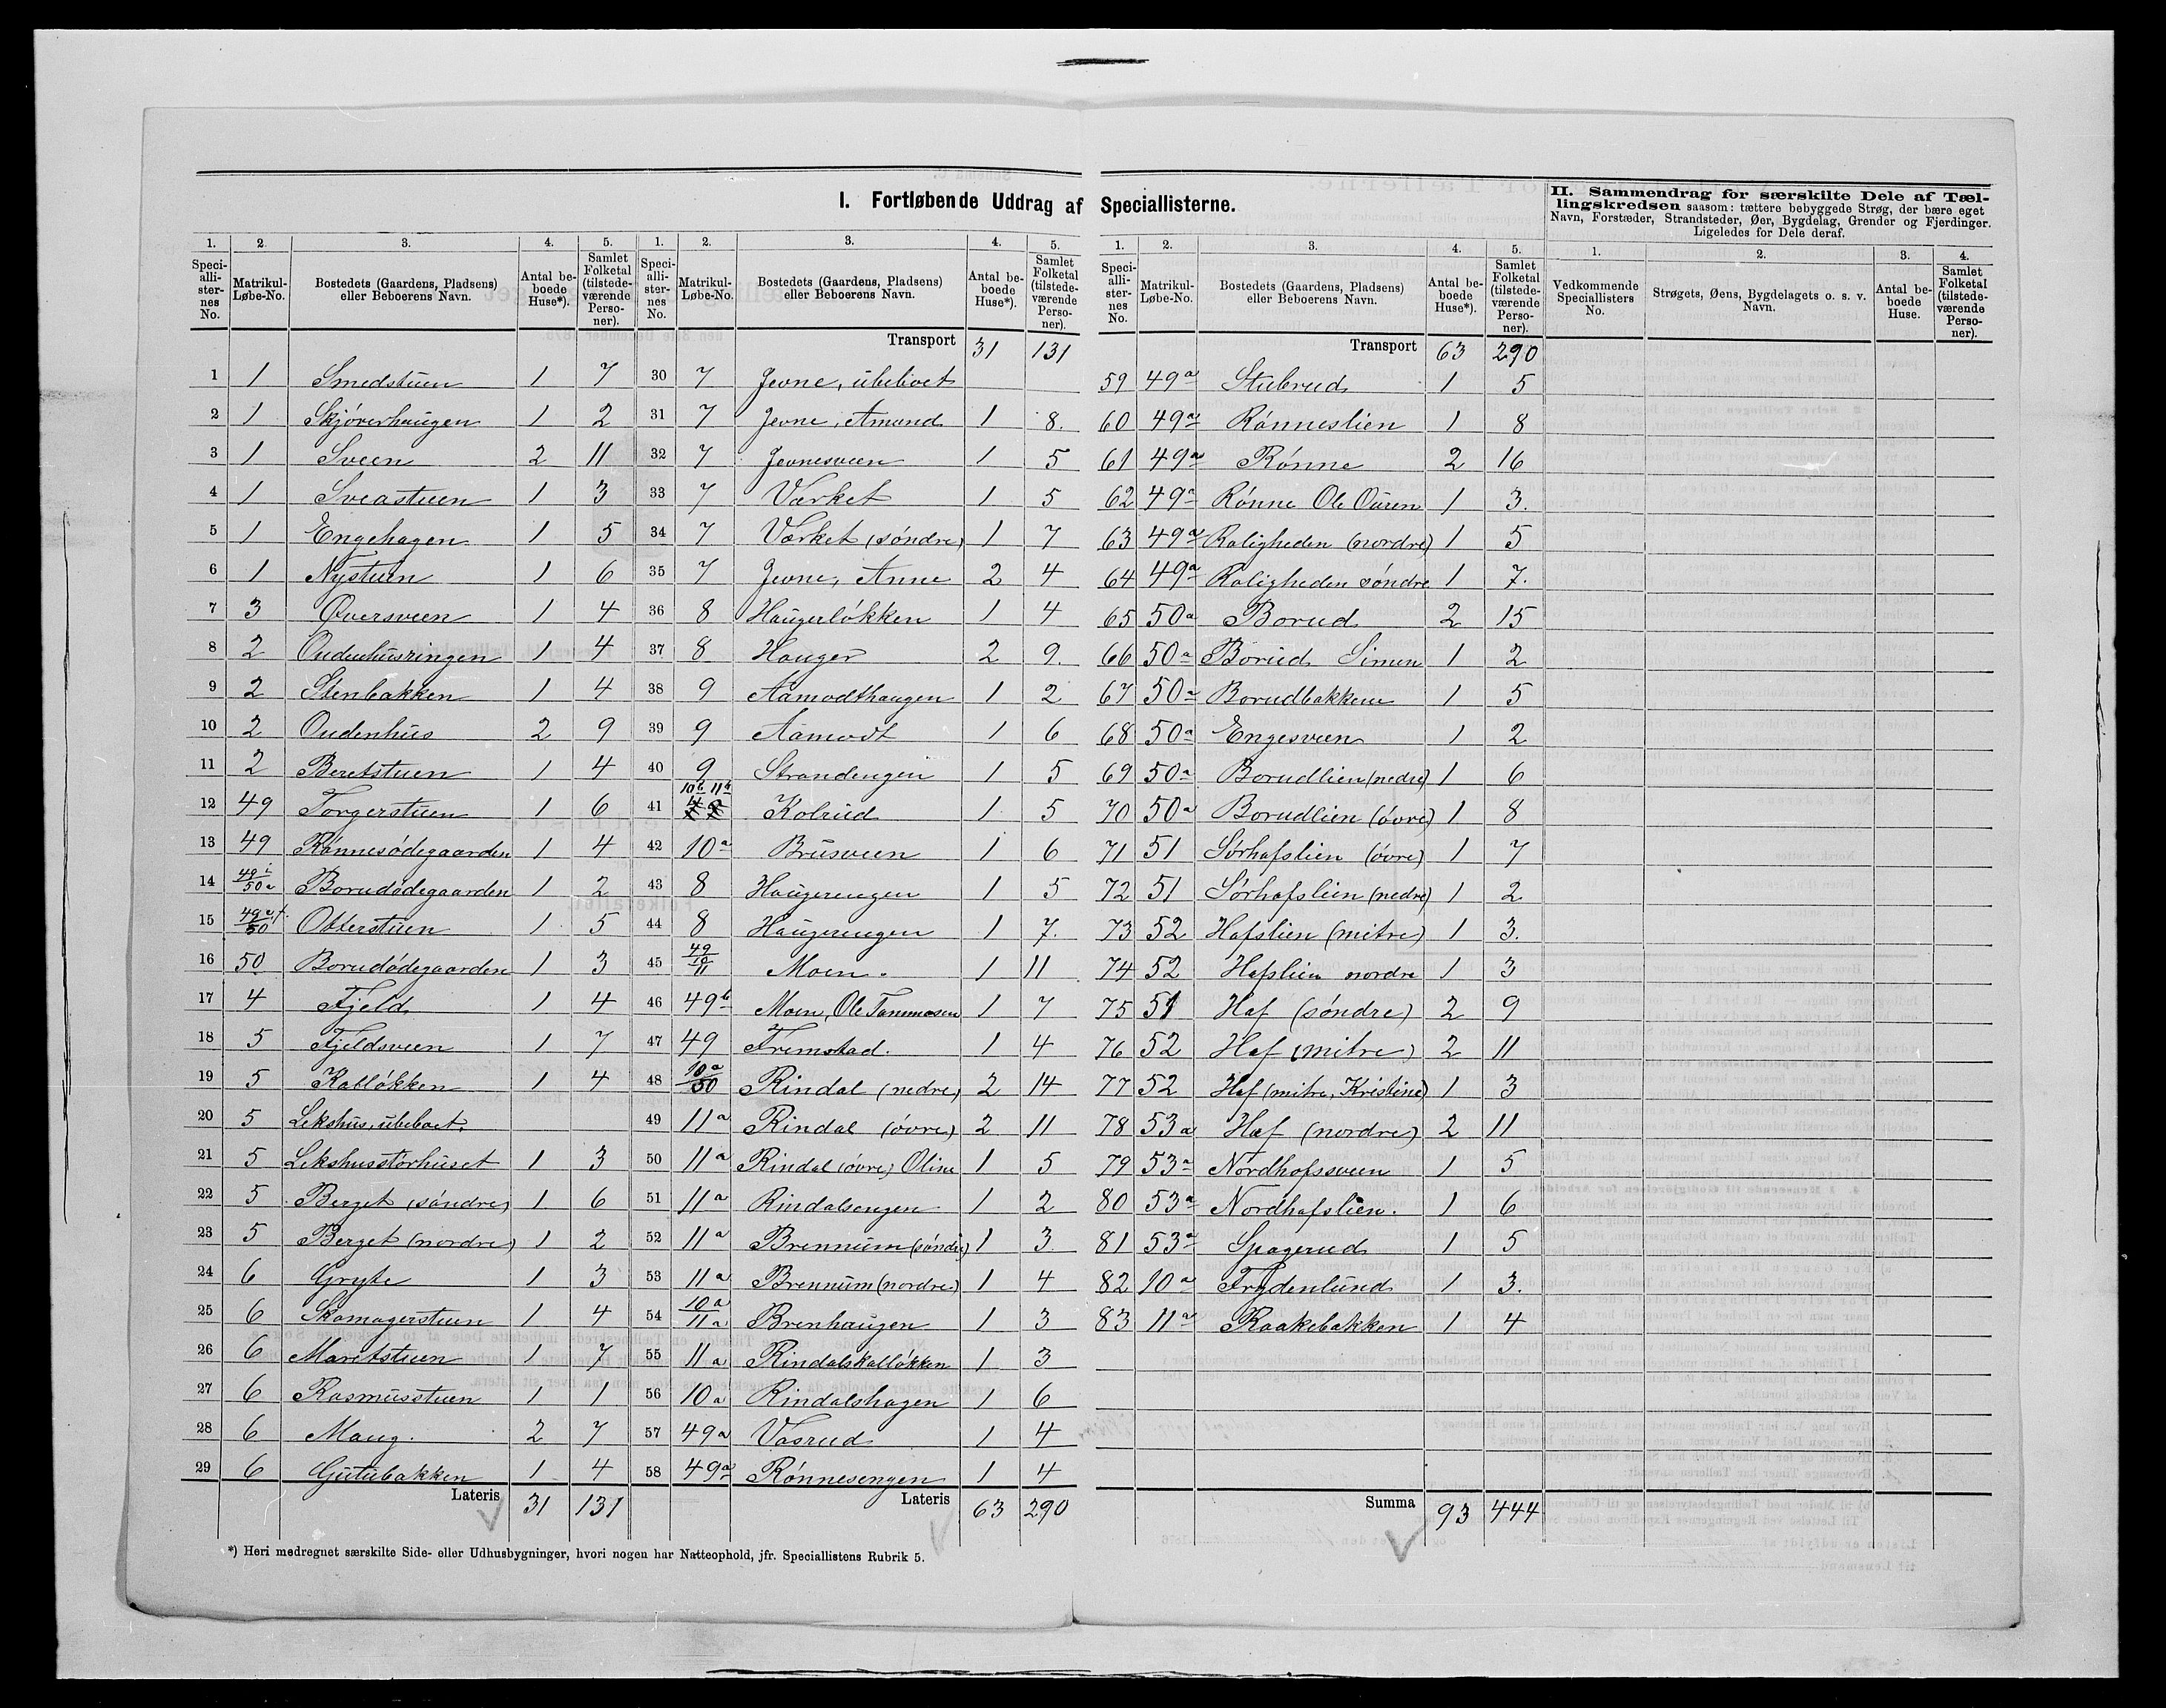 I. Fortløbende Uddrag af Speciallisterne.
II. Sammendrag for særskilte Dele af Tællingskredsen saasom: tættere bebyggede Strøg, der bære eget Navn, Forstæder, Strandsteder, Øer, Bygdelag, Grender og Fjerdinger. Ligeledes for Dele deraf.
1. 2. 3. 4. 5.
Speciallisternes No. Matrikul-Løbe-No. Bostedets (Gaardens, Pladsens) eller Beboerens Navn. Antal beboede Huse*). Samlet Folketal (tilstedeværende Personer).
1 1 Smedstuen 1 7
2 1 Skjöverhaugen 1 2
3 1 Sveen 2 11
4 1 Sveastuen 1 3
5 1 Engehagen 1 5
6 1 Nystuen 1 6
7 3 Oversveen 1 4
8 2 Oudenhusringen 1 4
9 2 Stenbakken 1 4
10 2 Oudenhus 2 9
11 2 Beretstuen 1 4
12 49 Torgerstuen 1 6
13 49 Rønnesødegaarden 1 4
14 49/50a Borudødegaarden 1 2
15 49a/50 Otterstuen 1 5
16 50 Borudødegaarden 1 3
17 4 Fjeld 1 4
18 5 Fjeldsveen 1 7
19 5 Kalløkken 1 4
20 5 Lekshus, ubeboet.
21 5 Lekshusstorhuset 1 3
22 5 Berget (søndre) 1 6
23 5 Berget (nordre) 1 2
24 6 Gryte 1 3
25 6 Skomagerstuen 1 4
26 6 Maritstuen 1 7
27 6 Rasmusstuen 1 1
28 6 Maug. 2 7
29 6 Gutubakken 1 4
Lateris 31 131
1. 2. 3. 4. 5.
Speciallisternes No. Matrikul-Løbe-No. Bostedets (Gaardens, Pladsens) eller Beboerens Navn. Antal beboede Huse*). Samlet Folketal (tilstedeværende Personer).
Transport 31 131
30 7 Jevne, ubeboet
31 7 Jevne, Amund 1 8.
32 7 Jevnesveen 1 5
33 7 Værket 1 5
34 7 Værket (søndre) 1 7
35 7 Jevne, Anne 2 4
36 8 Haugerløkken 1 4
37 8 Hauger 2 9.
38 9 Aamodthaugen 1 2
39 9 Aamodt 1 6
40 9 Strandengen 1 5
41 10b 11b Kolrud 1 5
42 10a Brusveen 1 6
43 8 Haugerengen 1 5
44 8 Haugerengen 1 7.
45 49/10/11 Moen. 1 11
46 49b Moen, Ole Tommesen 1 7
47 49 Fremstad. 1 4
48 10a/50 Rindal (nedre) 2 14
49 11a Rindal (øvre) 2 11
50 11a Rindal (øvre) Oline 1 5
51 11a Rindalsengen 1 2
52 11a Brennum (søndre) 1 3
53 11a Brennum (nordre) 1 4
54 10a/11a Brenhaugen 1 3
55 11a Rindalskalløkken 1 3
56 10a Rindalshagen 1 6
57 49a Vasrud 1 4
58 49a Rønnesengen 1 4
Lateris 63 290
1. 2. 3. 4. 5.
Speciallisternes No. Matrikul-Løbe-No. Bostedets (Gaardens, Pladsens) eller Beboerens Navn. Antal beboede Huse*). Samlet Folketal (tilstedeværende Personer).
Transport 63 290
59 49a Stubrud 1 5
60 49a Rønneslien 1 8
61 49a Rønne 2 16
62 49a Rønne Ole 1 3.
63 49a Roligheden (nordre) 1 5
64 49a Roligheden søndre 1 7.
65 50a Borud 2 15
66 50a Borud Simen 1 2
67 50a Borudbakken 1 5
68 50a Engesveen 1 2
69 50a Borudlien (nedre) 1 6
70 50a Borudlien (øvre) 1 8
71 51 Sørhafslien (øvre) 1 7
72 51 Sørhafslien (nedre) 1 2
73 52 Hafslien (mitre) 1 3.
74 52 Hafslien nordre 1 3
75 51 Haf (søndre) 2 9
76 52 Haf (mitre) 2 11
77 52 Haf (mitre, Kristine) 1 3
78 53a Haf (nordre) 2 11
79 53a Nordhafssveen 1 5
80 53a Nordhafslien. 1 6
81 53a Spagerud 1 5
82 10a Frydenlund 1 3.
83 11a Raakebakken 1 4
Summa 93 444
1. 2. 3. 4.
Vedkommende Speciallisters No. Strøgets, Øens, Bygdelagets o. s. v. Navn. Antal beboede Huse. Samlet Folketal (tilstedeværende Personer).
*) Heri medregnet særskilte Side- eller Udhusbygninger, hvori nogen har Natteophold, jfr. Speciallistens Rubrik 5.